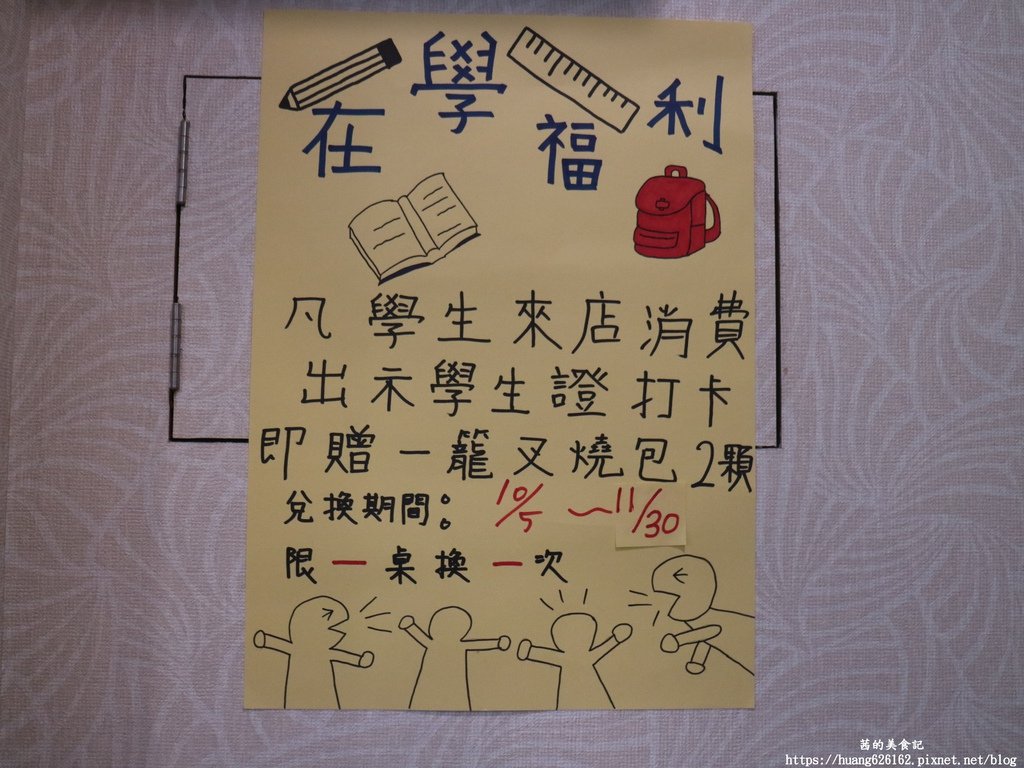 在學福利
凡學生來店消費
出示學生證打卡
即贈一籠叉燒包2顆
兌換期間：10/5～11/30
限一桌換一次
茜的美食記
https://huang626162.pixnet.net/blog